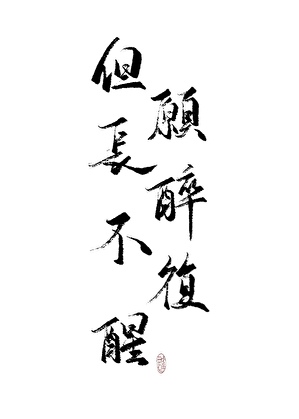 但願長醉不復醒